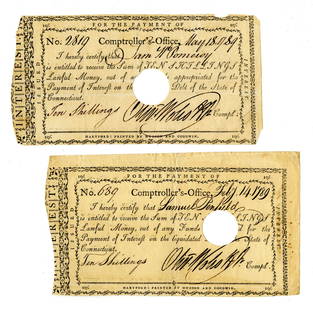 FOR THE PAYMENT OF
No. 2819 Comptroller's-Office, May 18 1789
I hereby certify that
is entitled to receive the Sum of TEN SHILLINGS
Lawful Money, out of any appropriated for the
Payment of Interest on Debt of the State of
Connecticut.
Ten Shillings Compt.
HARTFORD: PRINTED BY HUDSON AND GOODWIN.
INTEREST
FOR THE PAYMENT OF
No. 639 Comptroller's-Office, Feby 14 1789
I hereby certify that Samuel
is entitled to receive the Sum of TEN
Lawful Money, out of any Funds for the
Payment of Interest on the liquidated State of
Connecticut.
Ten Shillings Compt.
HARTFORD: PRINTED BY HUDSON AND GOODWIN.
INTEREST